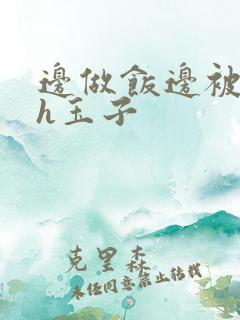 邊做飯邊被
h玉子
克里森
未経同意禁止转载